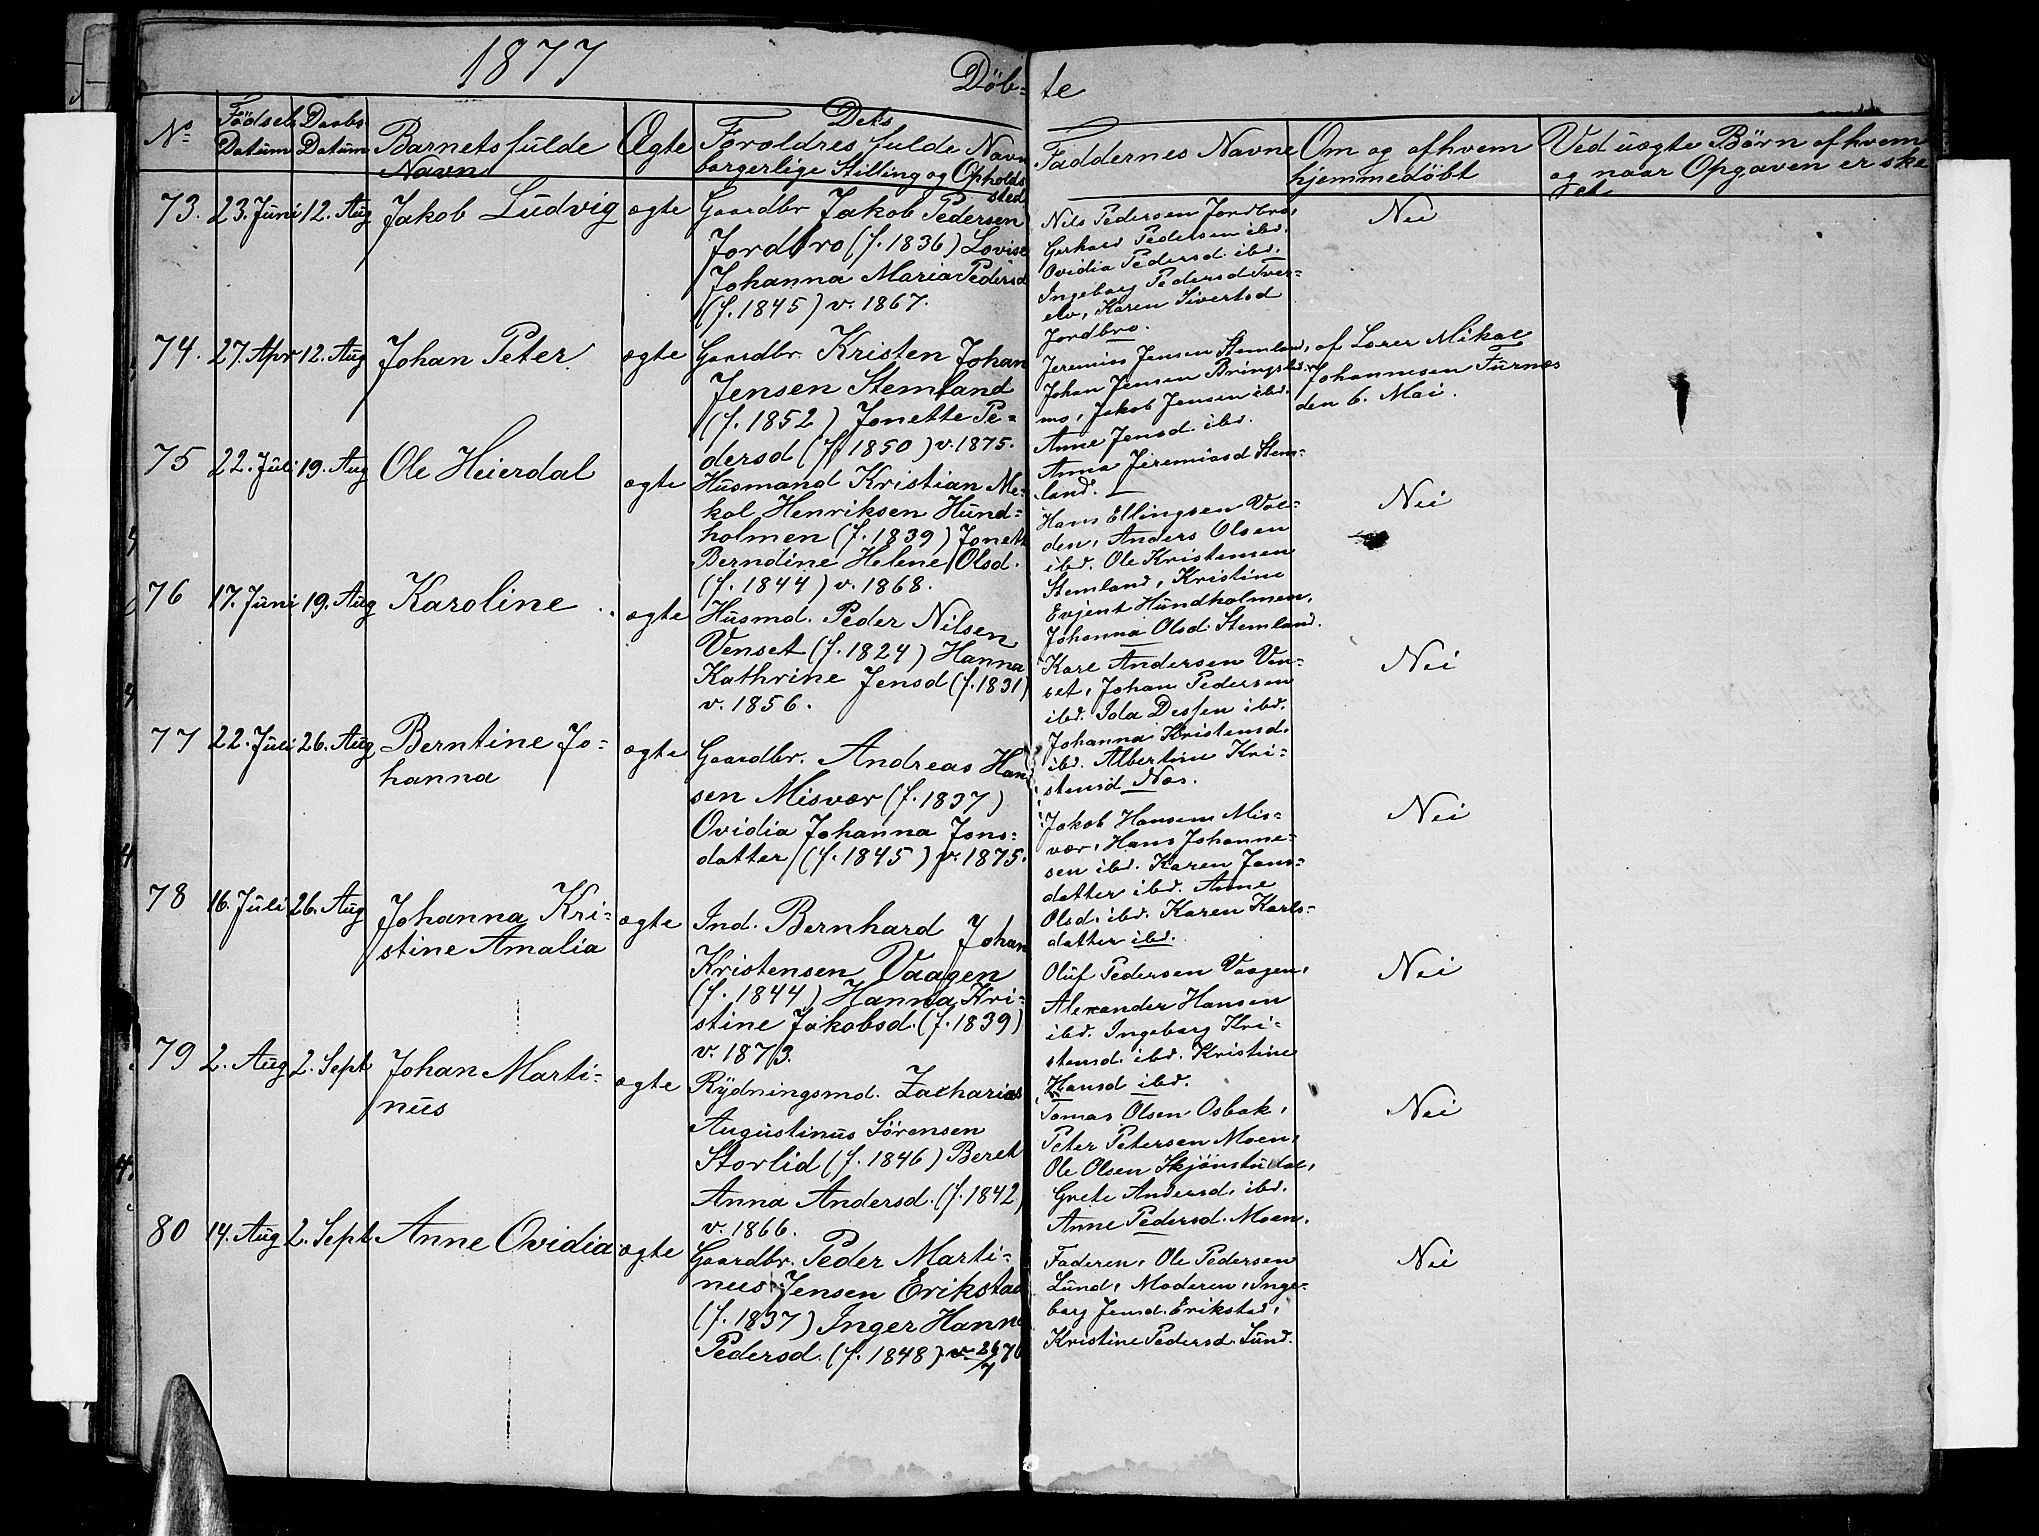 1877
Döb-
te
No
Födsels Datum
Daabs Datum
Barnets fulde Navn
Ægte
Dets Forældres fulde Navn borgerlige Stilling og Opholdssted
Faddernes Navne
Om og af hvem hjemmedöbt
Ved uægte Börn af hvem og naar Opgaven er skeet
73. 23. Juni 12. Aug Jakob Ludvig ægte
Gaardbr Jakob Pedersen
Jordbro (f. 1836) Lovise
Johanna Maria Pedersd
(f. 1845) v. 1867.
Nils Pedersen Jordbro,
Gerhard Pedersen ibd.
Ovidia Pedersd. ibd.
Ingeborg Pedersd Tver-
elv, Karen Sivertsd
Jordbro.
Nei
74. 27. Apr 12. Aug Johan Peter ægte
Gaardbr. Kristen Johan
Jensen Stemland
(f. 1852) Jonette Pe-
dersd (f 1850) v. 1875.
Jeremias Jensen Stemland,
Johan Jensen
Jakob Jensen ibd.
Anne Jensd. ibd.
Anna Jeremiasd Stem-
land.
af Lærer Mikal
Johannesen Furnes
den 6. Mai.
75 22. Juli 19. Aug Ole Heierdal ægte
Husmand Kristian Me-
kal Henriksen Hund-
holmen (f. 1839) Jonette
Berndine Helene Olsd.
(f. 1844) v. 1868.
Hans Ellingsen Val-
den, Anders Olsen
ibd. Ole Kristensen
Stemland, Kristine
Evjent Hundholmen,
Johanna Olsd. Stemland.
Nei
76 17. Juni 19. Aug Karoline ægte
Husmd. Peder Nilsen
Venset (f. 1824) Hanna
Kathrine Jensd (f. 1831)
v. 1856.
Karl Andersen Ven-
set, Johan Pedersen
ibd. Ida Dessen ibd.
Johanna Kristensd.
ibd. Albertine Kri-
stensd Næs.
Nei
77 22. Juli 26. Aug Berntine Jo-
hanna ægte
Gaardbr. Andreas Han
sen Misvær (f. 1837)
Ovidia Johanna Jens-
datter (f. 1845) v. 1875.
Jakob Hansen Mis-
vær, Hans Johanne-
sen ibd. Karen Jans-
datter ibd. Anne
Olsd. ibd. Karen Karls-
datter ibd.
Nei
78 16. Juli 26. Aug Johanna Kri-
stine Amalia ægte
Ind. Bernhard Johan
Kristensen Vaagen
(f. 1844) Hanna Kri-
stine Jakobsd. (f. 1839)
v. 1873.
Oluf Pedersen Vaagen,
Alexander Hansen
ibd. Ingeborg Kri-
stensd. ibd. Kristine
Hansd ibd.
Nei
79 2. Aug 2. Sept Johan Marti-
nus ægte
Rydningsmd. Zacharias
Augustinus Sörensen
Storlid (f. 1846) Beret
Anna Andersd. (f. 1842)
v. 1866.
Tomas Olsen Osbak,
Peter Petersen Moen,
Ole Olsen Skjönstudal,
Grete Andersd. ibd.
Anne Pedersd. Moen.
Nei
80 14. Aug 2. Sept Anne Ovidia ægte
Gaardbr. Peder Marti-
nus Jensen Erikstad
(f. 1837) Inger Hanna
Pedersd. (f. 1848) v.
Faderen, Ole Pedersen
Lund, Moderen, Inge-
borg Jensd. Erikstad,
Kristine Pedersd. Lund.
Nei